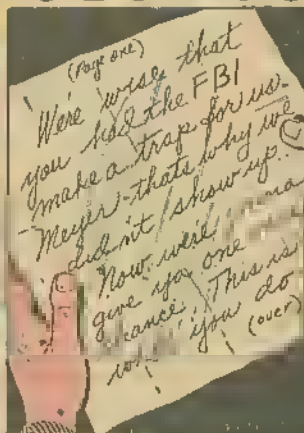 (Page one)
We're wise that
you had the FBI
make a trap for us-
Meyer-thats why we
didn't show up.
Now were gonna
give ya one
chance.. This is
what you do
(over)